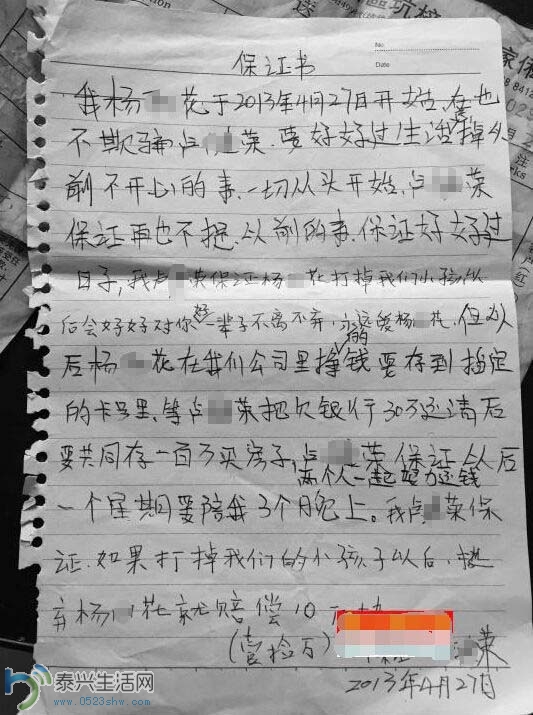 No.
Date
保证书
我杨 花于2013年4月27日开始,在也
不欺骗卢 荣.要好好过生活掉从
前不开心的事.一切从头开始,卢 荣
保证再也不提.从前的事.保证好好过
日子,我卢 荣保证杨 花打掉我们小孩从
后会好好对你好一辈子不离不弃,永远爱杨 花.但从
后杨 花在我们公司里挣的钱要存到指定
的卡号里,等卢 荣把欠银行30万还清后
要共同存一百万买房子,卢 荣保证从后
两个人一起努力还钱
一个星期要陪我3个晚上。我卢 荣保
证.如果打掉我们的小孩子以后,抛
弃杨 花就赔偿10
(壹拾万)
荣
2013年4月27日
泰兴生活网
www.0523shw.com